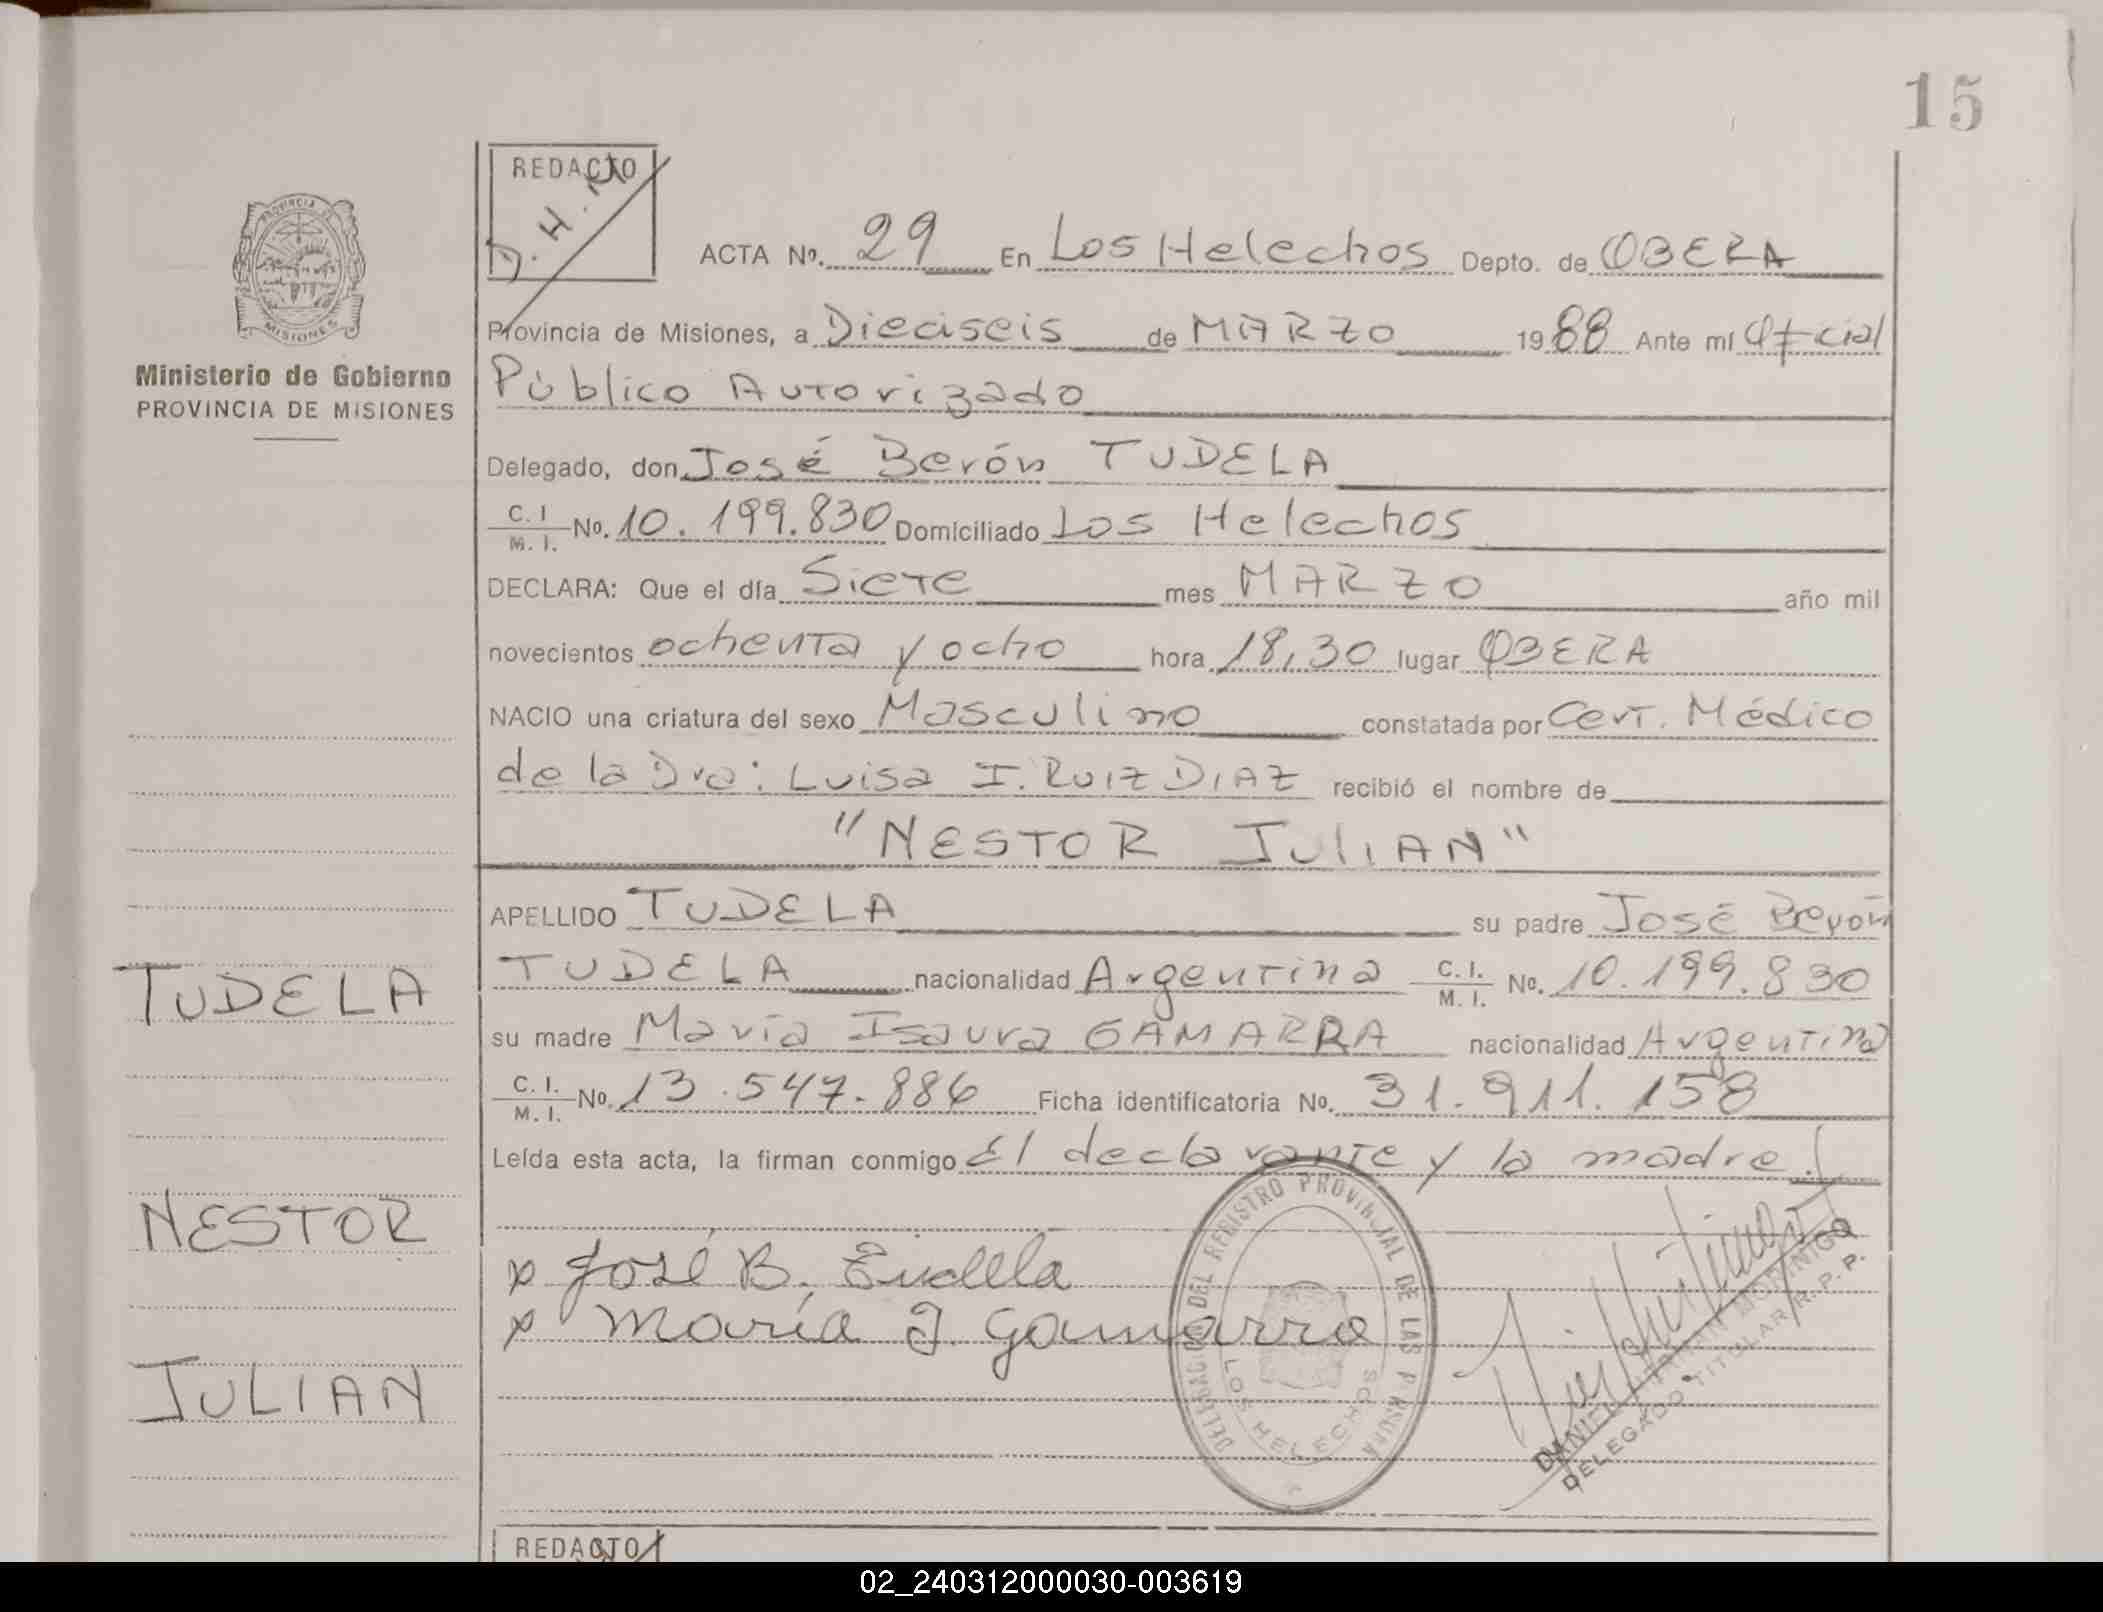 15
REDACTO
D.H.M
ACTA Nº. 29 En Los Helechos Depto. de OBERA
Provincia de Misiones, a Dieciseis de MARZO 1988 Ante mí Oficial
Público Autorizado
Delegado, don José Berón TUDELA
C. I. / M. I. No. 10.199.830 Domiciliado Los Helechos
DECLARA: Que el día Siete mes MARZO año mil
novecientos ochenta y ocho hora 18,30 lugar OBERA
NACIO una criatura del sexo Masculino constatada por Cert. Médico
de la Dra: Luisa I. RUIZ DIAZ recibió el nombre de
"NESTOR JULIAN"
APELLIDO TUDELA su padre José Berón
TUDELA nacionalidad Argentina C. I. / M. I. No. 10.199.830
su madre María Isaura GAMARRA nacionalidad Argentina
C. I. / M. I. No. 13.547.886 Ficha identificatoria No. 31.911.158
Leída esta acta, la firman conmigo El declarante y la madre.
x José B. Tudela
x María I. Gamarra
PROVINCIA DE
MISIONES
Ministerio de Gobierno
PROVINCIA DE MISIONES
TUDELA
NESTOR
JULIAN
DELEGACION DEL REGISTRO PROVINCIAL DE LAS PERSONAS
LOS HELECHOS
DELEGADO TITULAR R. P. P.
REDACTO
02_240312000030-003619